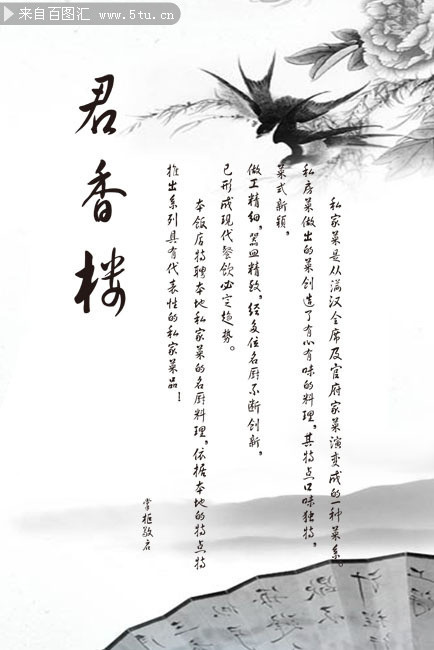 来自百图汇 www.5tu.cn
君香楼
私家菜是从满汉全席及官府家菜演变成的一种菜系。
私房菜做出的菜创造了有心有味的料理，其特点口味独特，
菜式新颖，
做工精细，器皿精致，经多位名厨不断创新，
已形成现代餐饮必定趋势。
本饭店特聘本地私家菜的名厨料理，依据本地的特点特
推出系列具有代表性的私家菜品！
掌柜敬启